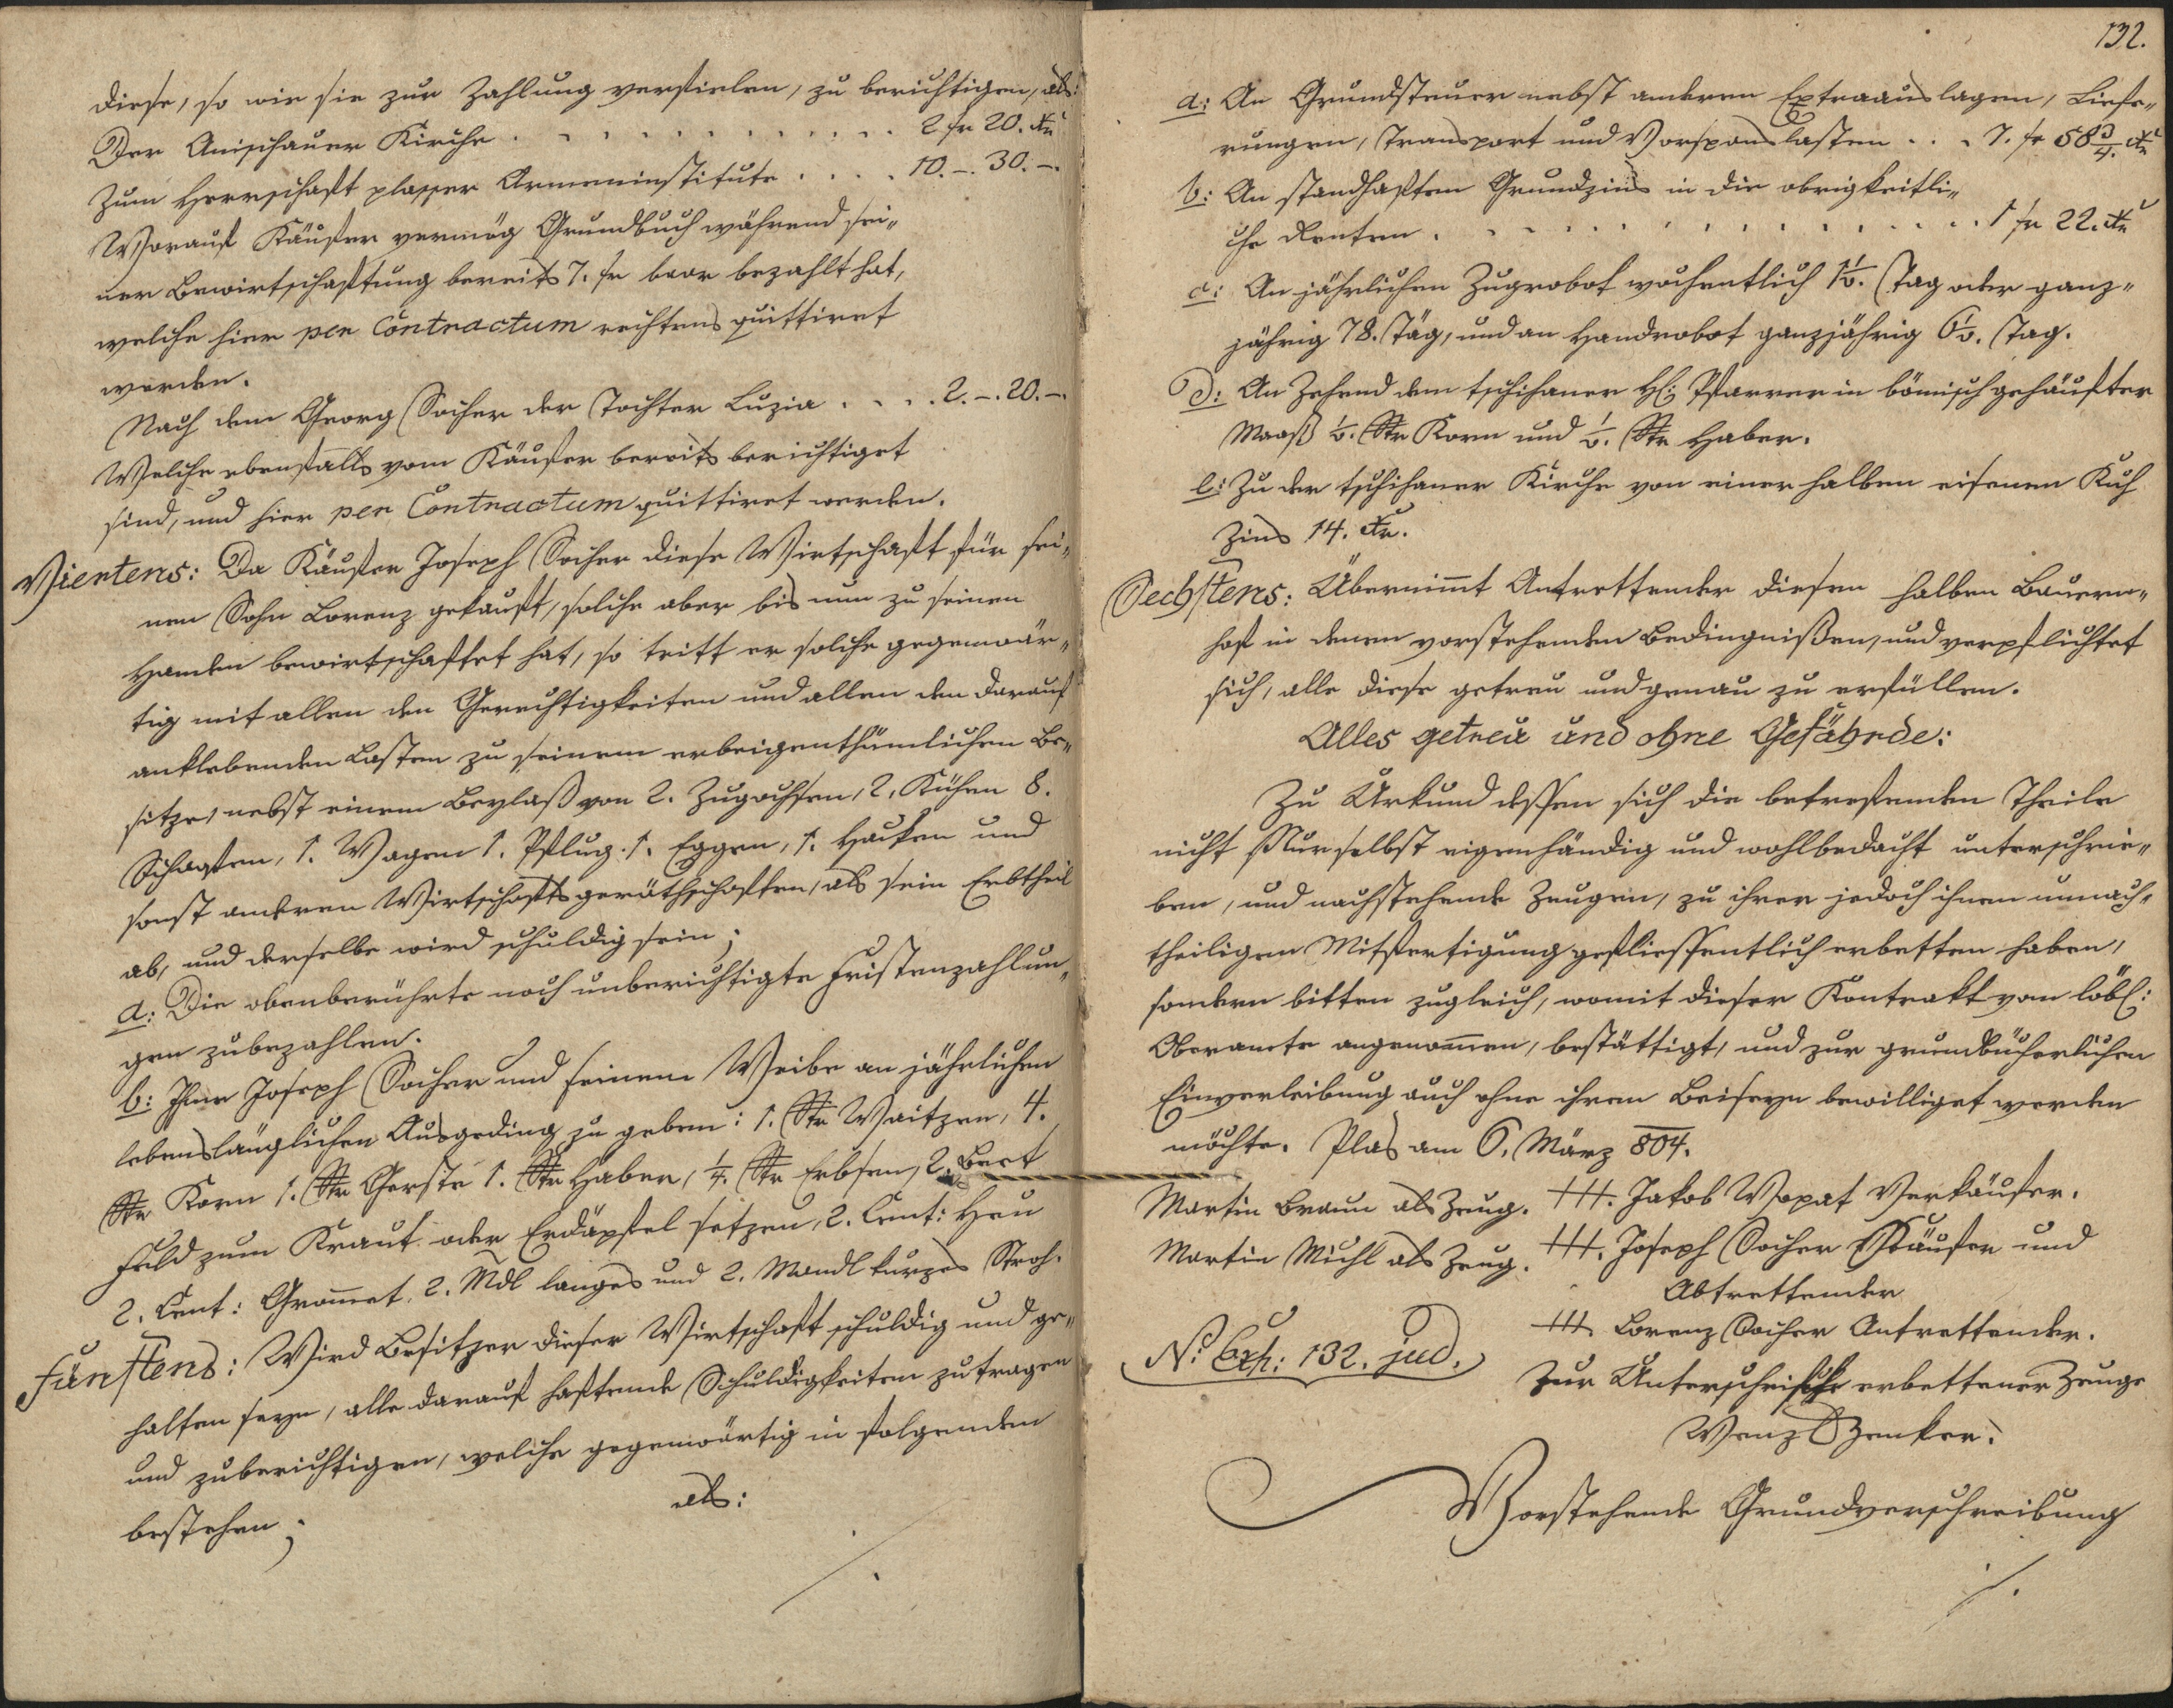 diese, so wie sie zur Zahlung verfielen, zu berichtigen, als:
Der Anischauer Kirche . . . . . . . . . . . . 2 fr 20. Xr
Zum Herrschaft plasser Armeninstitute . . . . 10. –. 30. –.
Worauf Käufer vermög Grundbuch während sei„
ner Bewirtschaftung bereits 7. fr baar bezahlt hat,
welche hier per Contractum rechtens quittiret
werden.
Nach dem Georg Socher der Tochter Luzia . . . . 2. –. 20. –.
Welche ebenfalls vom Käufer bereits berichtiget
sind, und hier per Contractum quittiret werden.
Viertens: Da Käufer Joseph Socher diese Wirtschaft für sei„
nen Sohn Lorenz gekauft, solche aber bis nun zu seinen
Handen bewirtschaftet hat, so tritt er solche gegenwär„
tig mit allen den Gerechtigkeiten und allen den darauf
anklebenden Lasten zu seinem erbeigenthümlichen Be„
sitze, nebst einem Beylaß von 2. Zugochsen, 2. Kühen 8.
Schaafen, 1. Wagen 1. Pflug. 1. Eggen, 1. Hacken und
sonst anderen Wirtschaftsgeräthschaften, als sein Erbtheil
ab, und derselbe wird schuldig sein;
a: Die obenberührte noch unberichtigte Fristenzahlun„
gen zubezahlen.
b: Ihm Joseph Socher und seinem Weibe an jährlichen
lebenslänglichen Ausgeding zu geben: 1. Str Waitzen, 4.
Str Korn 1. Str Gerste 1. Str Haber, 1/4. Str Erbsen, 2. Beet
Feld zum Kraut oder Erdäpfel setzen, 2. Cent: Heu
2. Cent: Gromet. 2. Mdl langes und 2. Mandl kurzes Stroh.
Fünftens: Wird Besitzer dieser Wirtschaft schuldig und ge„
halten seyn, alle darauf haftende Schuldigkeiten zu tragen
und zuberichtigen, welche gegenwärtig in folgenden
bestehen;
als:
132.
a: An Grundsteuer nebst anderen Extraauslagen, Liefe„
rungen, Transport und Vorspanslasten . . . 7. fr 58 3/4. Xr
b: An standhaftem Grundzins in die obrigkeitli„
che Renten . . . . . . . . . . . . . . . . 1 fr 22. Xr
c: An jährlichen Zugrobot wochentlich 1 1/2. Tag oder ganz„
jährig 78. Täg, und an Handrobot ganzjährig 6 1/2. Tag.
d: An Zehend dem tschihaner H: Pfarrer in bömisch gehäufter
Maaß 1/2. Str Korn und 1/2. Str Haber.
e: Zu der tschihaner Kirche von einer halben eisenen Kuh
Zins 14. Xr.
Sechstens: Übernimt Antrettender diesen halben Bauern„
hof in denen vorstehenden Bedingnißen, und verpflichtet
sich, alle diese getreu und genau zu erfüllen.
Alles getreu und ohne Gefährde:
Zu Urkund dessen sich die betrefenden Theile
nicht Nur selbst eigenhändig und wohlbedacht unterschrie„
ben, und nachstehende Zeugen, zu ihrer jedoch ihnen unnach„
theiligen Mitfertigung geflissentlich erbetten haben,
sondern bitten zugleich, womit dieser Kontrakt vom löbl:
Oberamte angenommen, bestättigt, und zur grundbücherlichen
Einverleibung auch ohne ihrem Beiseyn bewilliget werden
möchte. Plas am 6. März 804.
Martin Braun als Zeug. +++. Jakob Wopat Verkäufer.
Martin Michl als Zeug. +++. Joseph Socher Käufer und
Abtrettender
+++ Lorenz Socher Antrettender.
No. Exh: 132. jud.
Zur Unterschrift erbettener Zeuge
Wenzl Zenker.
Vorstehende Grundverschreibung